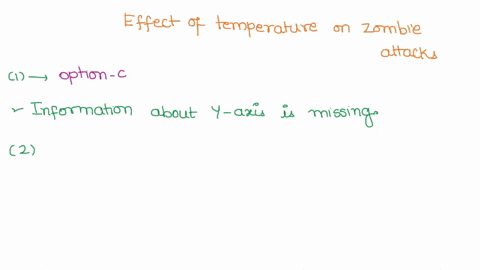 Effect of temperature on zombie
attacks
(1) → option-c
✓ Information about Y-axis is missing.
(2)